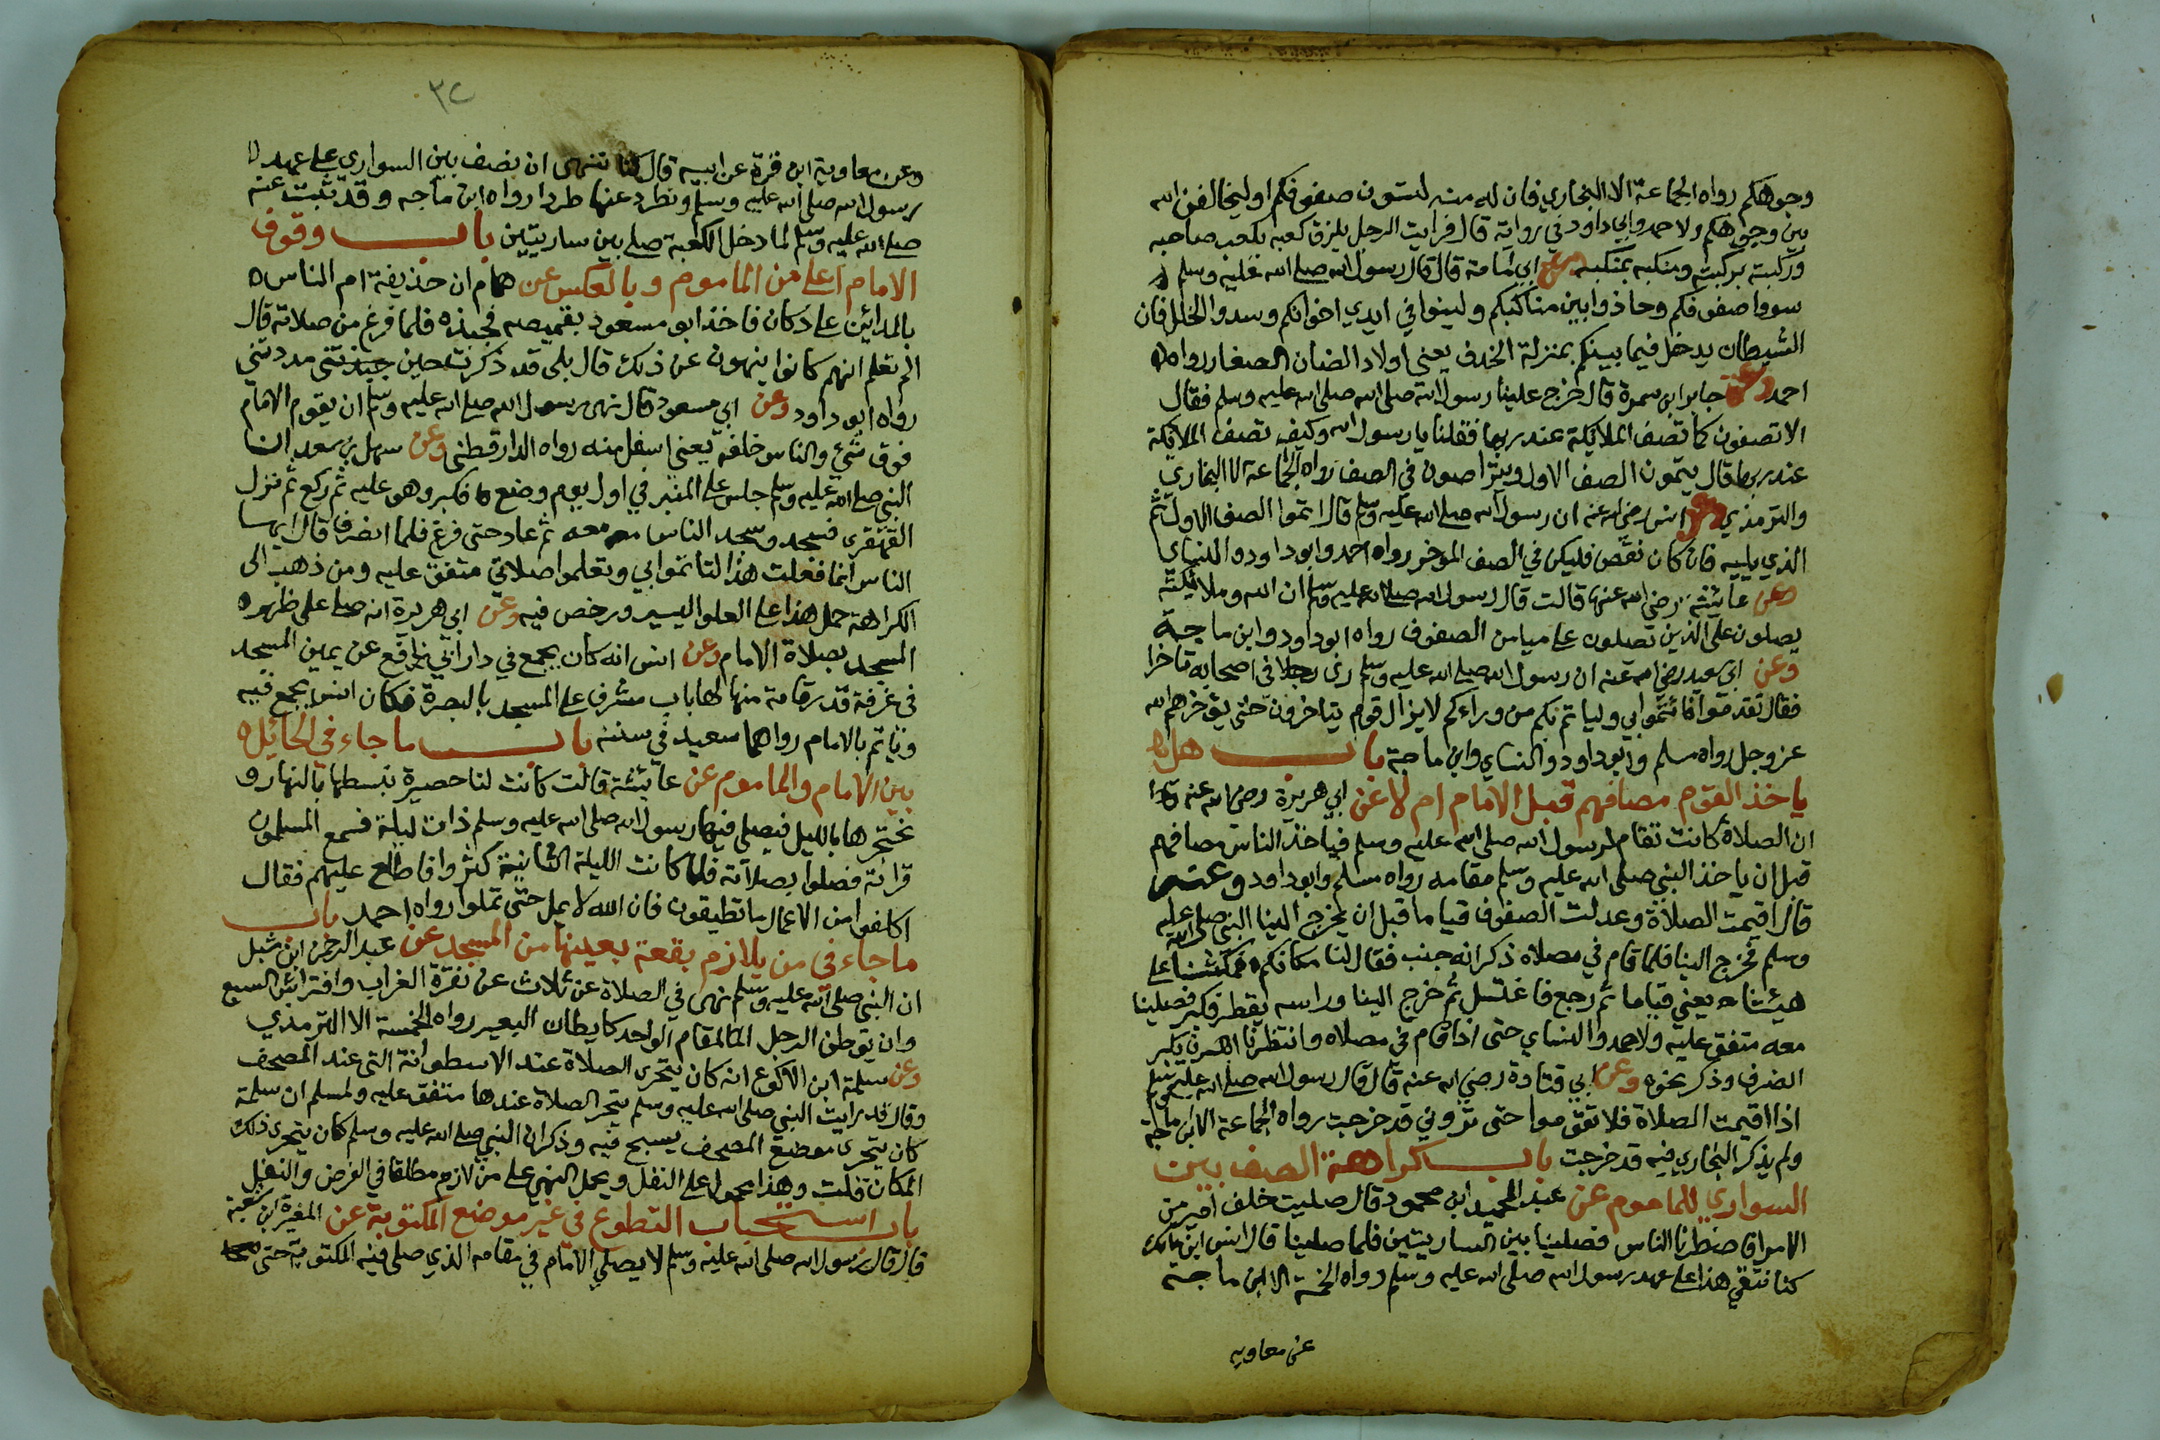 وجوهكم رواه الجماعة الا البخاري فان له منه لتسون صفوفكم او ليخالفن الله
بين وجوهكم ولاحمد وابي داود في رواية قال فرايت الرجل يلزق كعبه بكعب صاحبه
وركبته بركبته ومنكبه بمنكبه وعن ابي امامة قال قال رسول الله صلى الله عليه وسلم
سووا صفوفكم وحاذوا بين مناكبكم ولينوا في ايدي اخوانكم وسدوا الخلل فان
الشيطان يدخل فيما بينكم بمنزلة الخذف يعني اولاد الضان الصغار رواه
احمد وعن جابر ابن سمرة قال خرج علينا رسول الله صلى الله صلى الله عليه وسلم فقال
الا تصفون كما تصف الملايكة عند ربها فقلنا يا رسول الله وكيف تصف الملايكة
عند ربها قال يتمون الصف الاول ويتراصون في الصف رواه الجماعة الا البخاري
والترمذي وعن انس رضي الله عنه ان رسول الله صلى الله عليه وسلم قال اتموا الصف الاول ثم
الذي يليه فان كان نقص فليكن في الصف الموخر رواه احمد وابو داود والنساي
وعن عايشة رضي الله عنها قالت قال رسول الله صلى الله عليه وسلم ان الله وملائكته
يصلون على الذين يصلون على ميامن الصفوف رواه ابو داود وابن ماجة
وعن ابي سعيد رضي الله عنه ان رسول الله صلى الله عليه وسلم رى رجلا في اصحابه تاخرا
فقال تقدموا فائتموا بي ولياتم بكم من وراءكم لا يزال قوم يتاخرون حتى يؤخرهم الله
عز وجل رواه مسلم وابو داود والنساي وابن ماجة باب هل
ياخذ القوم مصافهم قبل الامام ام لا عن ابي هريرة رضي الله عنه
ان الصلاة كانت تقام لرسول الله صلى الله عليه وسلم فياخذ الناس مصافهم
قبل ان ياخذ النبي صلى الله عليه وسلم مقامه رواه مسلم وابو داود وعنه
قال اقيمت الصلاة وعدلت الصفوف قياما قبل ان يخرج الينا النبي صلى الله عليه
وسلم فخرج الينا فلما قام في مصلاه ذكر انه جنب فقال لنا مكانكم فمكثنا على
هيئتنا يعني قياما ثم رجع فاغتسل ثم خرج الينا وراسه يقطر فكبر فصلينا
معه متفق عليه ولاحمد والنساي حتى اذا قام في مصلاه وانتظرنا ان يكبر
انصرف وذكر نحوه وعن ابي قتادة رضي الله عنه قال قال رسول الله صلى الله عليه وسلم
اذا اقيمت الصلاة فلا تقوموا حتى تروني قد خرجت رواه الجماعة الا ابن ماجة
ولم يذكر البخاري فيه قد خرجت باب كراهة الصف بين
السواري للماموم عن عبد الحميد ابن محمود قال صليت خلف امير من
الامرا فاضطرنا الناس فصلينا بين الساريتين فلما صلينا قال انس ابن مالك
كنا نتقي هذا على عهد رسول الله صلى الله عليه وسلم رواه الخمسة الا ابن ماجة
عن معاوية
٣٢
وعن معاوية ابن قرة عن ابيه قال كنا ننهى ان نصف بين السواري على عهد
رسول الله صلى الله عليه وسلم ونطرد عنها طردا رواه ابن ماجه وقد ثبت عنه
صلى الله عليه وسلم لما دخل الكعبة صلى بين ساريتين باب وقوف
الامام اعلى من الماموم وبالعكس عن همام ان حذيفة ام الناس
بالمدائن على دكان فاخذ ابو مسعود بقميصه فجبذه فلما فرغ من صلاته قال
الم تعلم انهم كانوا ينهون عن ذلك قال بلى قد ذكرت حين جبذتني مددتني
رواه ابو داود وعن ابي مسعود قال نهى رسول الله صلى الله عليه وسلم ان يقوم الامام
فوق شيء والناس خلفه يعني اسفل منه رواه الدارقطني وعن سهل بن سعد ان
النبي صلى الله عليه وسلم جلس على المنبر في اول يوم وضع فكبر وهو عليه ثم ركع ثم نزل
القهقرى فسجد وسجد الناس معه ثم عاد حتى فرغ فلما انصرف قال ايها
الناس انما فعلت هذا لتاتموا بي وتعلموا صلاتي متفق عليه ومن ذهب الى
الكراهة حمل هذا على العلو اليسير ورخص فيه وعن ابي هريرة انه صلى على ظهر
المسجد بصلاة الامام وعن انس انه كان يجمع في دار ابي نافع عن يمين المسجد
في غرفة قدر قامة منها لها باب مشرف على المسجد بالبصرة فكان انس يجمع فيه
وياتم بالامام رواهما سعيد في سننه باب ما جاء في الحائل
بين الامام والماموم عن عايشة قالت كانت لنا حصيرة نبسطها بالنهار و
نحتجرها بالليل فيصلي فيها رسول الله صلى الله عليه وسلم ذات ليلة فسمع المسلمون
قراته فصلوا بصلاته فلما كانت الليلة الثانية كثروا فاطلع عليهم فقال
اكلفوا من الاعمال ما تطيقون فان الله لا يمل حتى تملوا رواه احمد باب
ما جاء في من يلازم بقعة بعينها من المسجد عن عبد الرحمن ابن شبل
ان النبي صلى الله عليه وسلم نهى في الصلاة عن ثلاث عن نقرة الغراب وافتراش السبع
وان يوطن الرجل المقام الواحد كايطان البعير رواه الخمسة الا الترمذي
وعن سلمة ابن الاكوع انه كان يتحرى الصلاة عند الاسطوانة التي عند المصحف
وقال قد رايت النبي صلى الله عليه وسلم يتحر الصلاة عندها متفق عليه ولمسلم ان سلمة
كان يتحرى موضع المصحف يسبح فيه وذكر ان النبي صلى الله عليه وسلم كان يتحرى ذلك
المكان قلت وهذا محمول على النفل ويحمل النهي على من لازم مطلقا في الفرض والنفل
باب استحباب التطوع في غير موضع المكتوبة عن المغيرة ابن شعبة
قال قال رسول الله صلى الله عليه وسلم لا يصلي الامام في مقامه الذي صلى فيه المكتوبة حتى